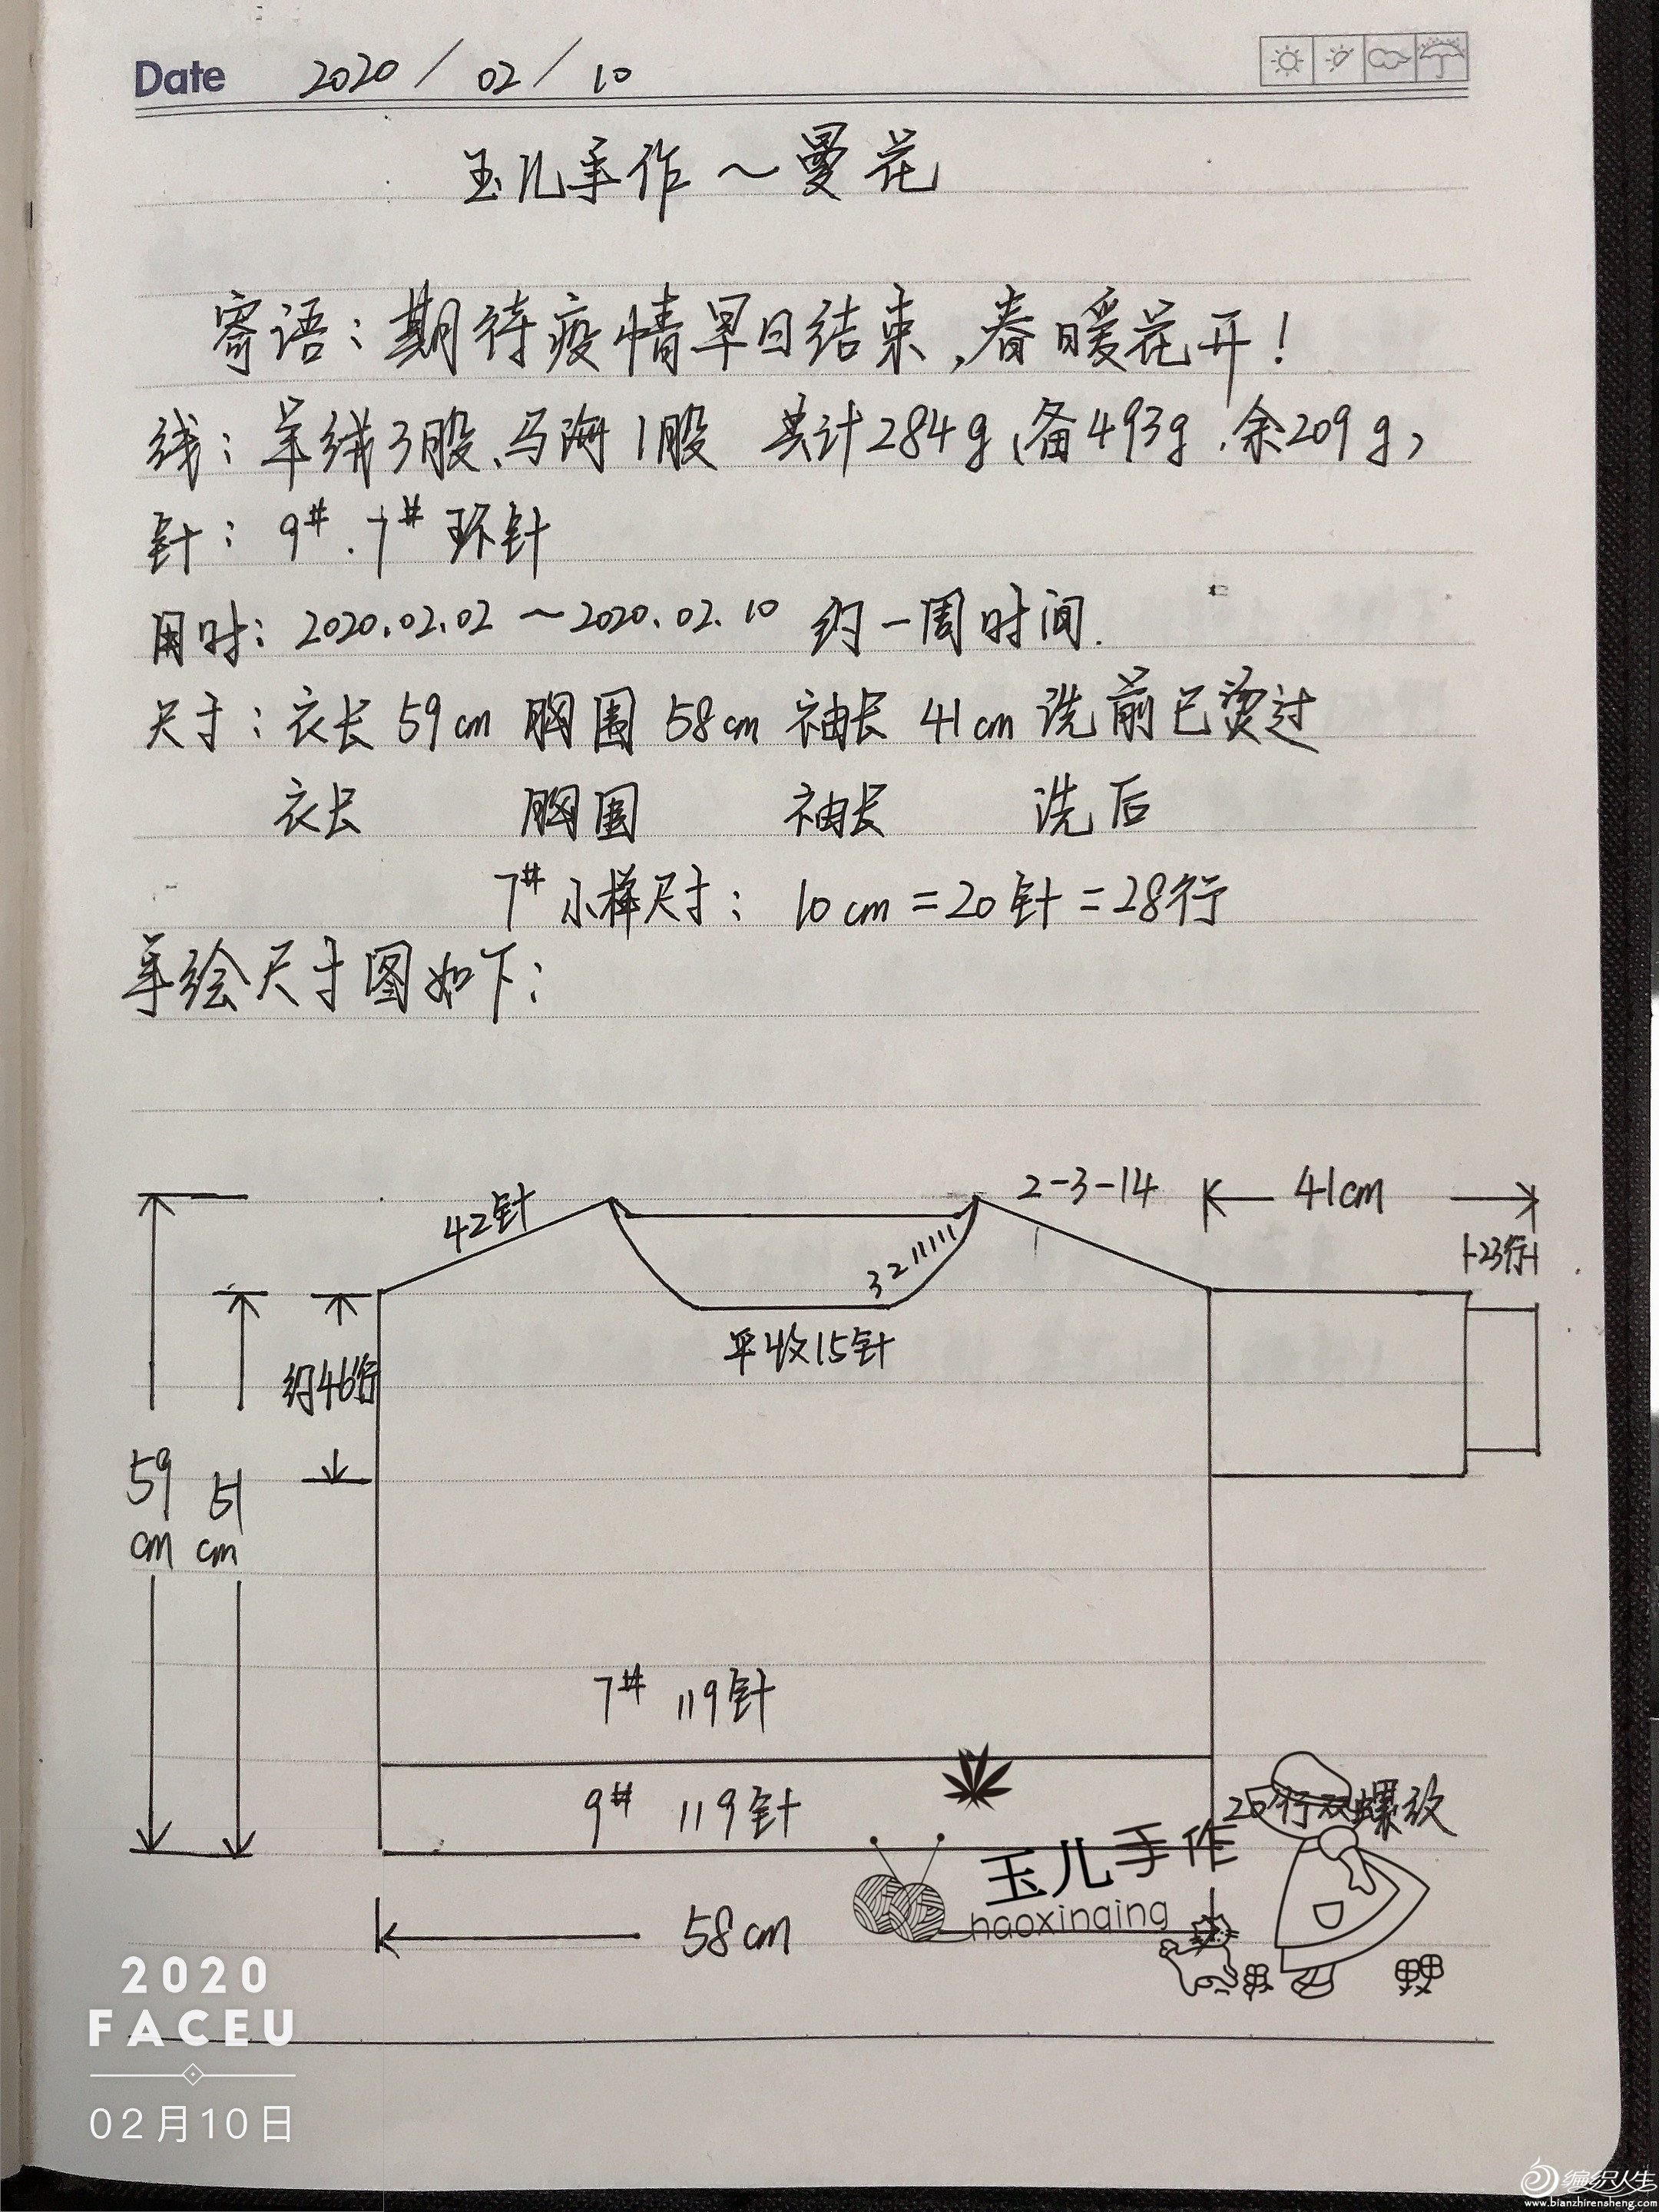 Date 2020 / 02 / 10
玉儿手作～曼花
寄语：期待疫情早日结束，春暖花开！
线：羊绒3股、马海1股 共计284g、备493g.余209g,
针：9#.7#环针
用时：2020.02.02～2020.02.10 约一周时间.
尺寸：衣长59cm 胸围58cm 袖长41cm 洗前已烫过
衣长 胸围 袖长 洗后
7#小样尺寸：10cm=20针=28行
手绘尺寸图如下：
42针
2-3-14
41cm
23行
32111111
平收15针
约46行
59cm
51cm
7# 119针
9# 119针
20行双螺纹
玉儿手作
haoxinqing
58cm
2020
FACEU
02月10日
编织人生
www.bianzhirensheng.com